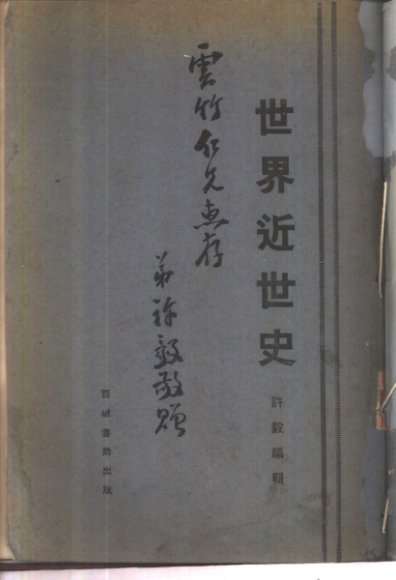 世界近世史
許毅編輯
雲竹仁兄惠存
弟許毅敬贈
百城書局出版